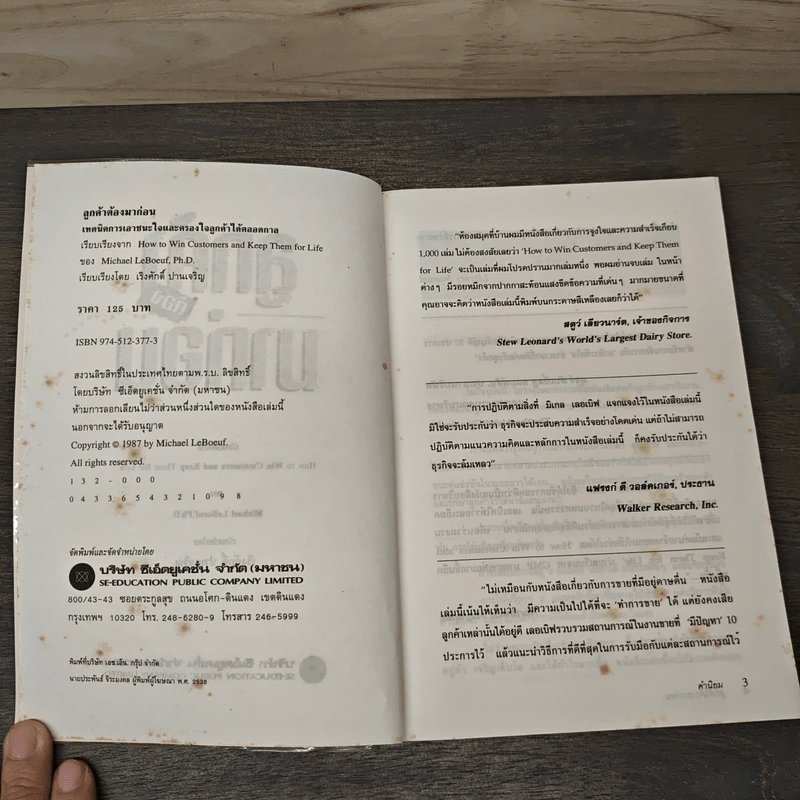 ลูกค้าต้องมาก่อน
เทคนิคการเอาชนะใจและครองใจลูกค้าได้ตลอดกาล
เรียบเรียงจาก How to Win Customers and Keep Them for Life
ของ Michael LeBoeuf, Ph.D.
เรียบเรียงโดย เริงศักดิ์ ปานเจริญ
ราคา 125 บาท
ISBN 974-512-377-3
สงวนลิขสิทธิ์ในประเทศไทยตามพ.ร.บ. ลิขสิทธิ์
โดยบริษัท ซีเอ็ดยูเคชั่น จำกัด (มหาชน)
ห้ามการลอกเลียนไม่ว่าส่วนหนึ่งส่วนใดของหนังสือเล่มนี้
นอกจากจะได้รับอนุญาต
Copyright © 1987 by Michael LeBoeuf.
All rights reserved.
132-000
0433654321098
จัดพิมพ์และจัดจำหน่ายโดย
บริษัท ซีเอ็ดยูเคชั่น จำกัด (มหาชน)
SE-EDUCATION PUBLIC COMPANY LIMITED
800/43-43 ซอยตระกูลสุข ถนนอโศก-ดินแดง เขตดินแดง
กรุงเทพฯ 10320 โทร. 248-6280-9 โทรสาร 246-5999
พิมพ์ที่บริษัท เอช.เอ็น. กรุ๊ป จำกัด
นายประพันธ์ จิระมงคล ผู้พิมพ์ผู้โฆษณา พ.ศ. 2538
“ห้องสมุดที่บ้านผมมีหนังสือเกี่ยวกับการจูงใจและความสำเร็จเกือบ
1,000 เล่ม ไม่ต้องสงสัยเลยว่า ‘How to Win Customers and Keep Them
for Life’ จะเป็นเล่มที่ผมโปรดปรานมากเล่มหนึ่ง พอผมอ่านจบเล่ม ในหน้า
ต่างๆ มีรอยหมึกจากปากกาสะท้อนแสงขีดข้อความที่เด่นๆ มากมายขนาดที่
คุณอาจจะคิดว่าหนังสือเล่มนี้พิมพ์บนกระดาษสีเหลืองเลยก็ว่าได้”
สตูว์ เลียวนาร์ด, เจ้าของกิจการ
Stew Leonard's World's Largest Dairy Store.
“การปฏิบัติตามสิ่งที่ มิเกล เลอเบิฟ แจกแจงไว้ในหนังสือเล่มนี้
มิใช่จะรับประกันว่า ธุรกิจจะประสบความสำเร็จอย่างโดดเด่น แต่ถ้าไม่สามารถ
ปฏิบัติตามแนวความคิดและหลักการในหนังสือเล่มนี้ ก็คงรับประกันได้ว่า
ธุรกิจจะล้มเหลว”
แฟรงก์ ดี วอล์คเกอร์, ประธาน
Walker Research, Inc.
“ไม่เหมือนกับหนังสือเกี่ยวกับการขายที่มีอยู่ดาษดื่น หนังสือ
เล่มนี้เน้นให้เห็นว่า มีความเป็นไปได้ที่จะ ‘ทำการขาย’ ได้ แต่ยังคงเสีย
ลูกค้าเหล่านั้นได้อยู่ดี เลอเบิฟรวบรวมสถานการณ์ในงานขายที่ ‘มีปัญหา’ 10
ประการไว้ แล้วแนะนำวิธีการที่ดีที่สุดในการรับมือกับแต่ละสถานการณ์ไว้
คำนิยม 3